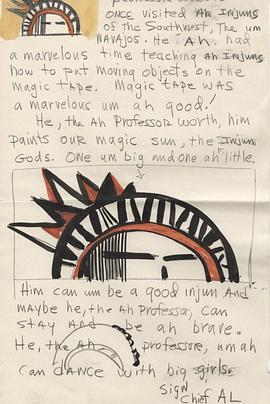 once visited Ah Injuns
of the Southwest, The um
NAVAJOS. He Ah had
a marvelous time teaching Ah Injuns
how to put moving objects on the
magic tape. Magic tape was
a marvelous um - ah good!
He, the Ah Professor worth, him
paints our magic sun, the Injun
Gods. One um big and one ah little.
Him can um be a good injun And
maybe he, the ah Professor, can
stay And be ah brave.
He, the Ah professore, um ah
can dance with big girls.
Sign
Chief AL